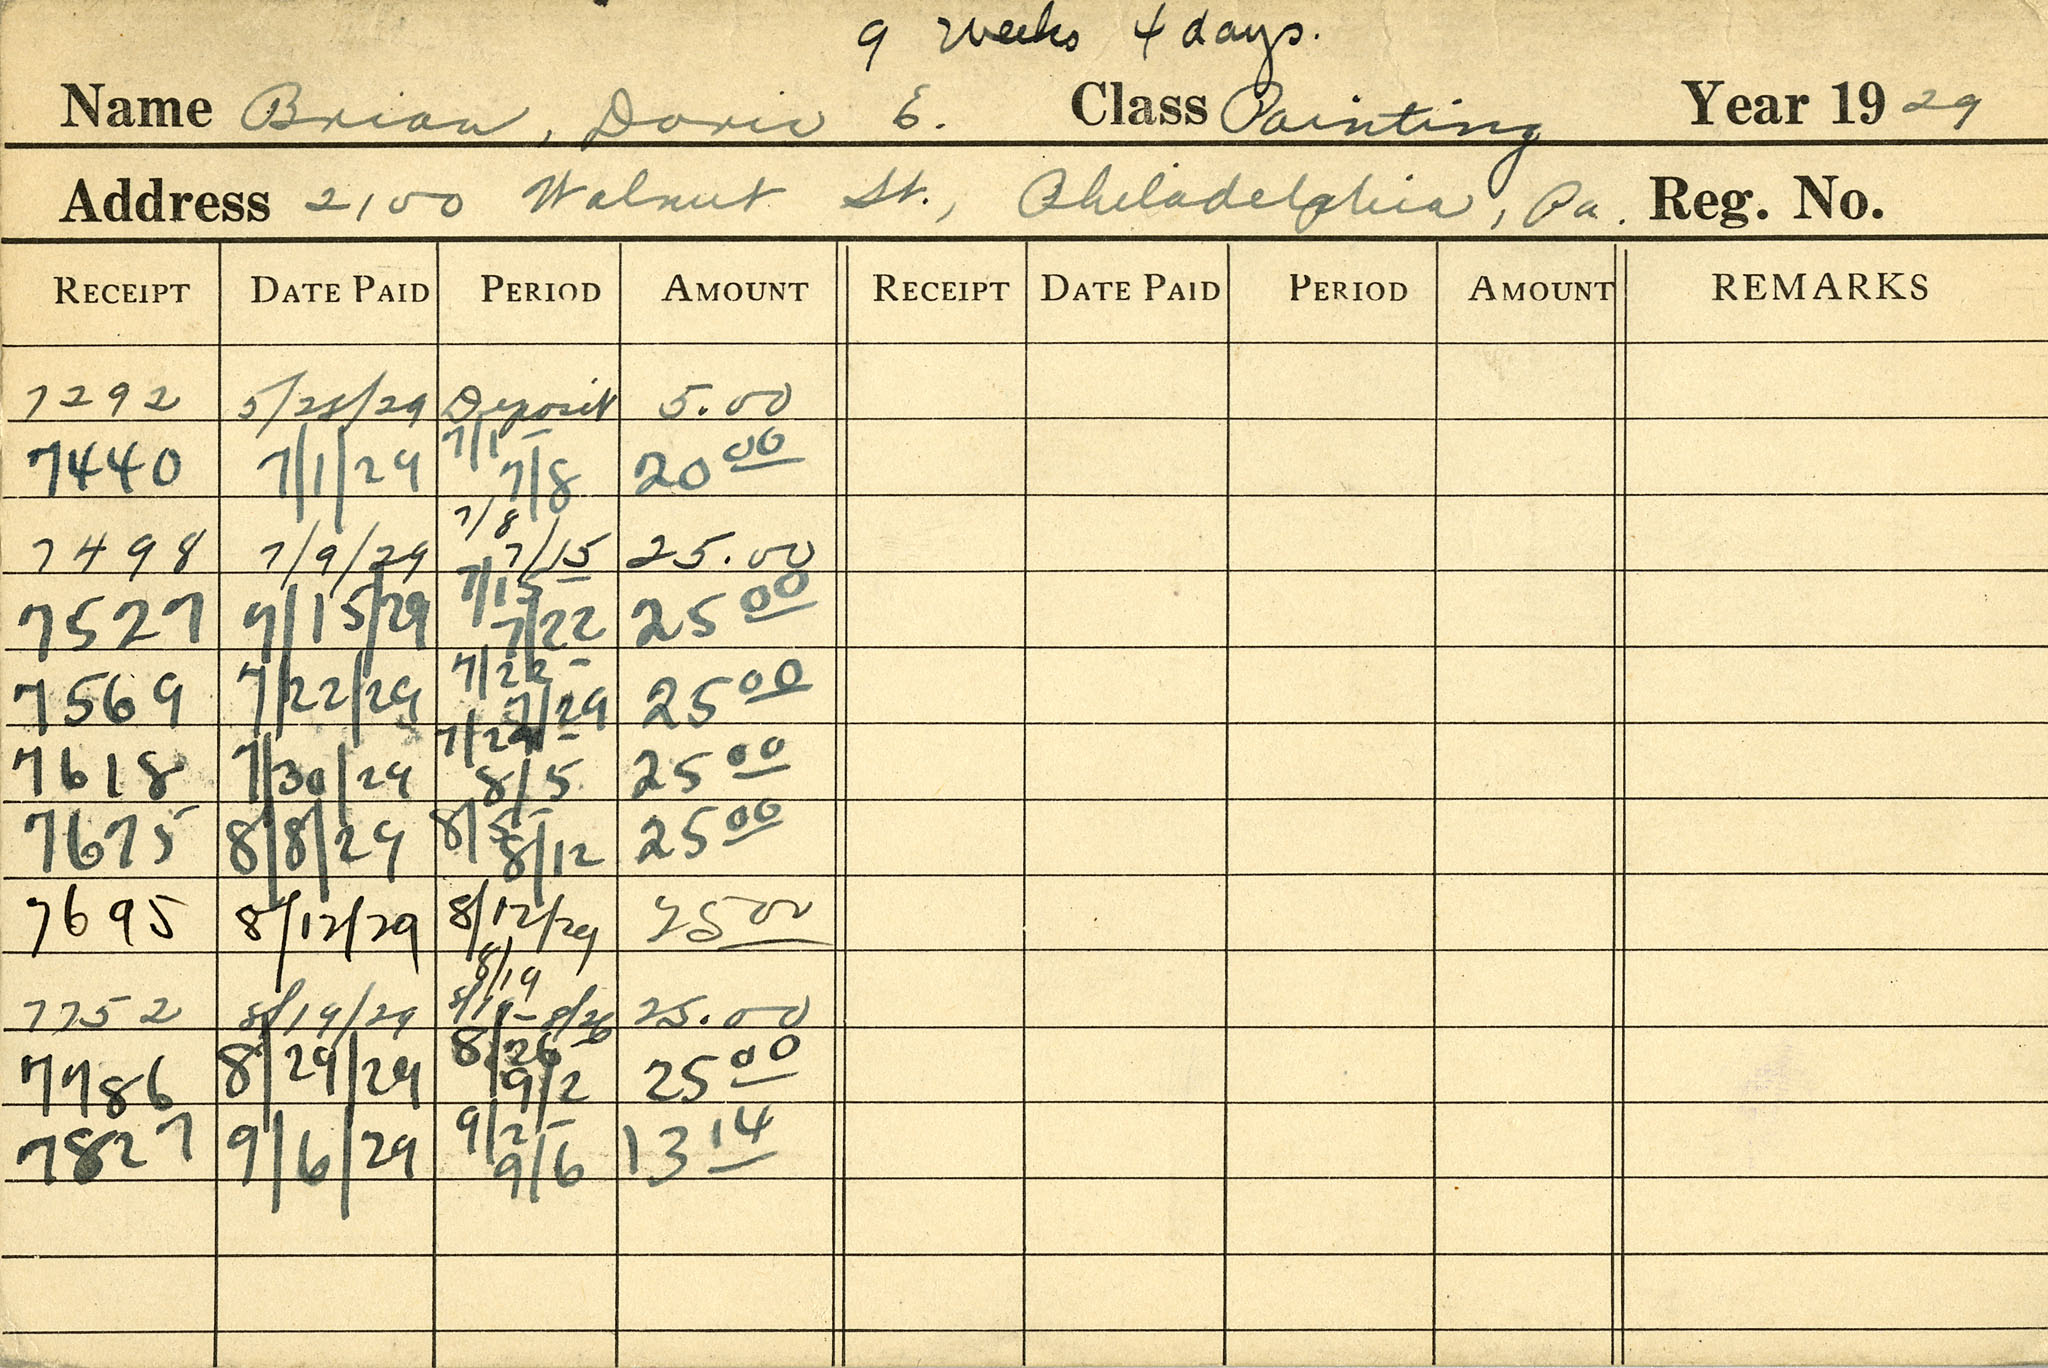 9 weeks 4 days.
Name Brian, Doris E. Class Painting Year 1929
Address 2100 Walnut St., Philadelphia, Pa. Reg. No.
RECEIPT DATE PAID PERIOD AMOUNT RECEIPT DATE PAID PERIOD AMOUNT REMARKS
7292 5/28/29 Deposit 5.00
7440 7/1/29 7/1 - 7/8 20 00
7498 7/9/29 7/8 7/15 25.00
7527 7/15/29 7/15 - 7/22 25 00
7569 7/22/29 7/22 - 7/29 25 00
7618 7/30/29 7/29 - 8/5 25 00
7675 8/8/29 8/5 - 8/12 25 00
7695 8/12/29 8/12/29 8/19 25 00
7752 8/19/29 8/19 - 8/26 25.00
7786 8/29/29 8/26 - 9/2 25 00
7827 9/6/29 9/2 - 9/6 13 14